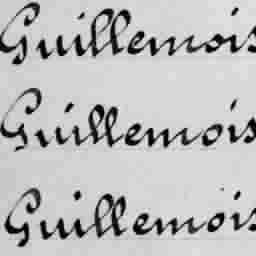 Guillemois
Guillemois
Guillemois